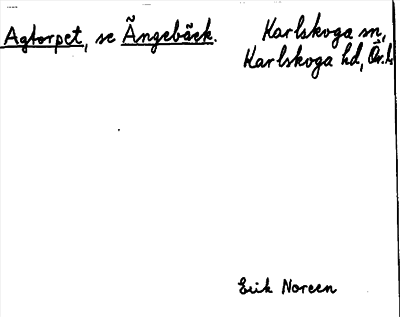 Agtorpet, se Ängebäck.
Karlskoga sn,
Karlskoga hd, Ör. l.
Erik Noreen